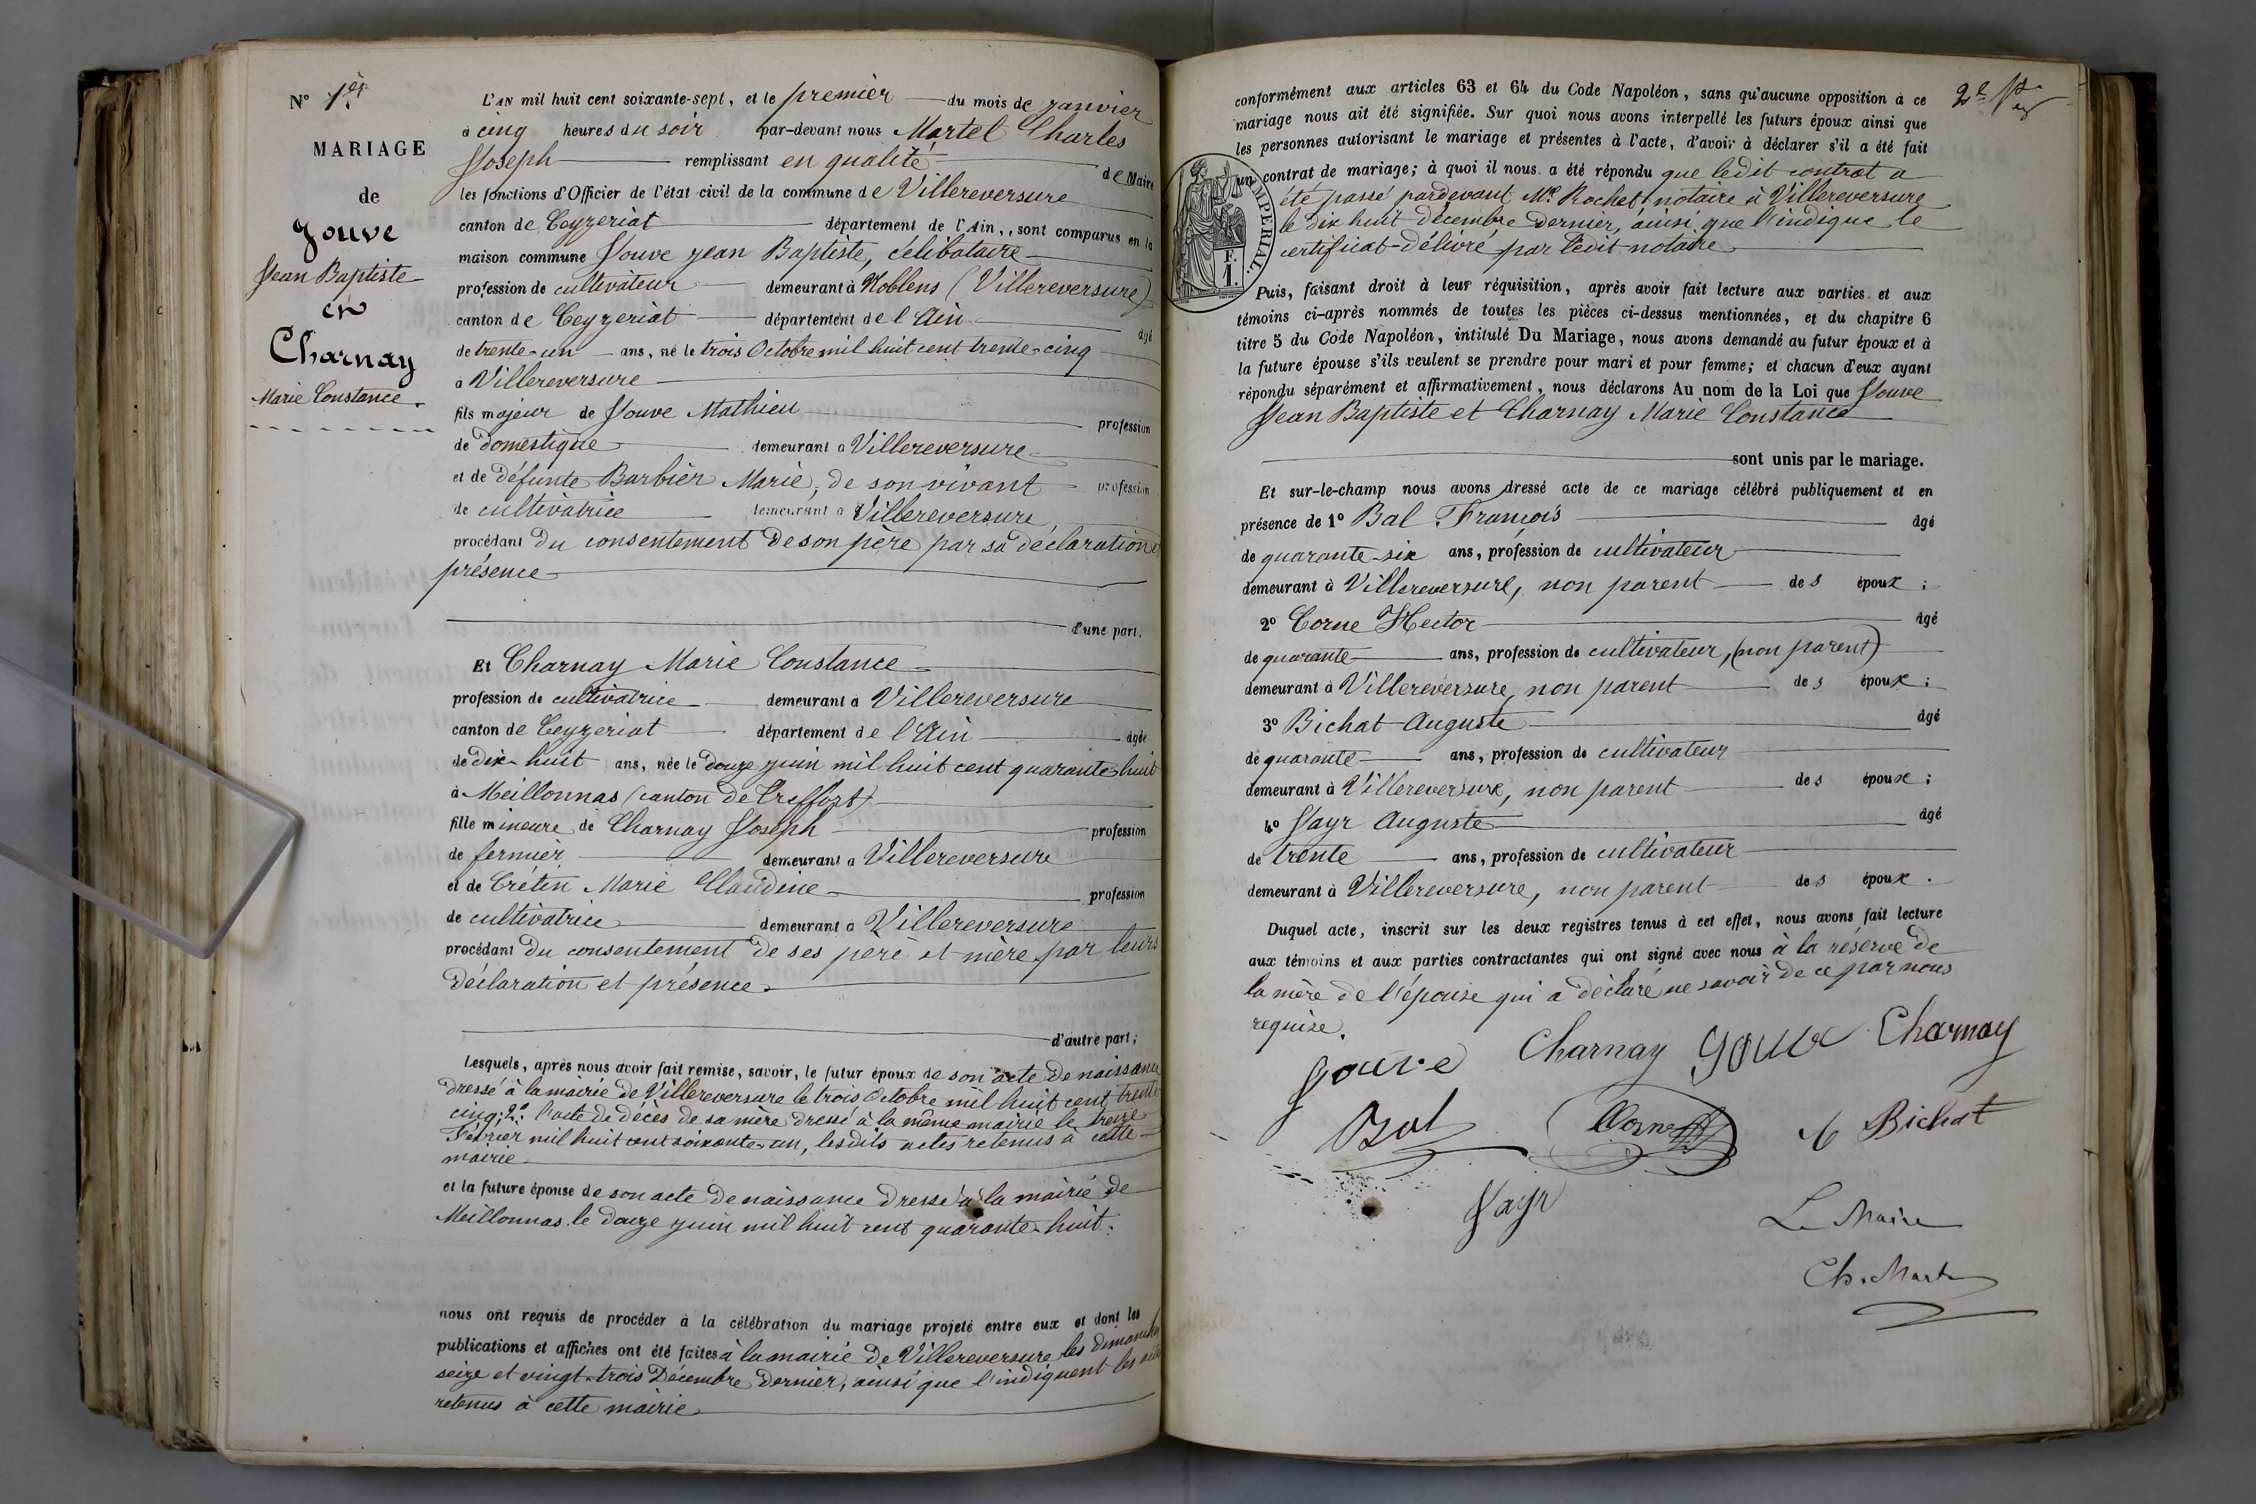 N° 1er
MARIAGE
de
Jouve
Jean Baptiste
et
Charnay
Marie Constance.
L'AN mil huit cent soixante-sept, et le premier du mois de janvier
à cinq heures du soir par-devant nous Martel Charles
Joseph remplissant en qualité de Maire
les fonctions d'Officier de l'état civil de la commune de Villereversure
canton de Ceyzeriat département de l'Ain, sont comparus en la
maison commune Jouve jean Baptiste, célibataire
profession de cultivateur demeurant à Noblens (Villereversure)
canton de Ceyzeriat département de l'Ain âgé
de trente-un ans, né le trois Octobre mil huit cent trente-cinq
à Villereversure
fils majeur de Jouve Mathieu profession
de domestique demeurant à Villereversure
et de défunte Barbier Marie, de son vivant profession
de cultivatrice demeurant à Villereversure
procédant du consentement de son père par sa déclaration et
présence
d'une part.
Et Charnay Marie Constance
profession de cultivatrice demeurant à Villereversure
canton de Ceyzeriat département de l'Ain âgée
de dix-huit ans, née le douze juin mil huit cent quarante-huit
à Meillonnas (canton de Treffort)
fille mineure de Charnay Joseph profession
de fermier demeurant à Villereversure
et de Crétin Marie Claudine profession
de cultivatrice demeurant à Villereversure
procédant du consentement de ses père et mère par leurs
déclaration et présence
d'autre part;
Lesquels, après nous avoir fait remise, savoir, le futur époux de son acte de naissance
dressé à la mairie de Villereversure le trois Octobre mil huit cent trente
cinq; 2° l'acte de décès de sa mère dressé à la même mairie le treize
Février mil huit cent soixante-un, lesdits actes retenus à cette
mairie
et la future épouse de son acte de naissance dressé à la mairie de
Meillonnas le douze juin mil huit cent quarante-huit.
nous ont requis de procéder à la célébration du mariage projeté entre eux et dont les
publications et affiches ont été faites à la mairie de Villereversure les dimanches
seize et vingt-trois Décembre dernier, ainsi que l'indiquent les actes
retenus à cette mairie
2e
IMPERIAL.
F.
1.
conformément aux articles 63 et 64 du Code Napoléon, sans qu'aucune opposition à ce
mariage nous ait été signifiée. Sur quoi nous avons interpellé les futurs époux ainsi que
les personnes autorisant le mariage et présentes à l'acte, d'avoir à déclarer s'il a été fait
un contrat de mariage; à quoi il nous a été répondu que ledit contrat a
été passé pardevant Me Rochet notaire à Villereversure
le dix huit décembre dernier, ainsi que l'indique le
certificat délivré par ledit notaire
Puis, faisant droit à leur réquisition, après avoir fait lecture aux parties et aux
témoins ci-après nommés de toutes les pièces ci-dessus mentionnées, et du chapitre 6
titre 5 du Code Napoléon, intitulé Du Mariage, nous avons demandé au futur époux et à
la future épouse s'ils veulent se prendre pour mari et pour femme; et chacun d'eux ayant
répondu séparément et affirmativement, nous déclarons Au nom de la Loi que Jouve
Jean Baptiste et Charnay Marie Constance
sont unis par le mariage.
Et sur-le-champ nous avons dressé acte de ce mariage célébré publiquement et en
présence de 1° Bal François âgé
de quarante-six ans, profession de cultivateur
demeurant à Villereversure, non parent des époux;
2° Corne Hector âgé
de quarante ans, profession de cultivateur, (non parent)
demeurant à Villereversure, non parent des époux;
3° Bichat Auguste âgé
de quarante ans, profession de cultivateur
demeurant à Villereversure, non parent des époux;
4° Jayr Auguste âgé
de trente ans, profession de cultivateur
demeurant à Villereversure, non parent des époux.
Duquel acte, inscrit sur les deux registres tenus à cet effet, nous avons fait lecture
aux témoins et aux parties contractantes qui ont signé avec nous à la réserve de
la mère de l'épouse qui a déclaré ne savoir de ce par nous
requise.
Jouve Charnay Jouve Charnay
Bal Corne A Bichat
Jayr Le Maire
Ch. Martel